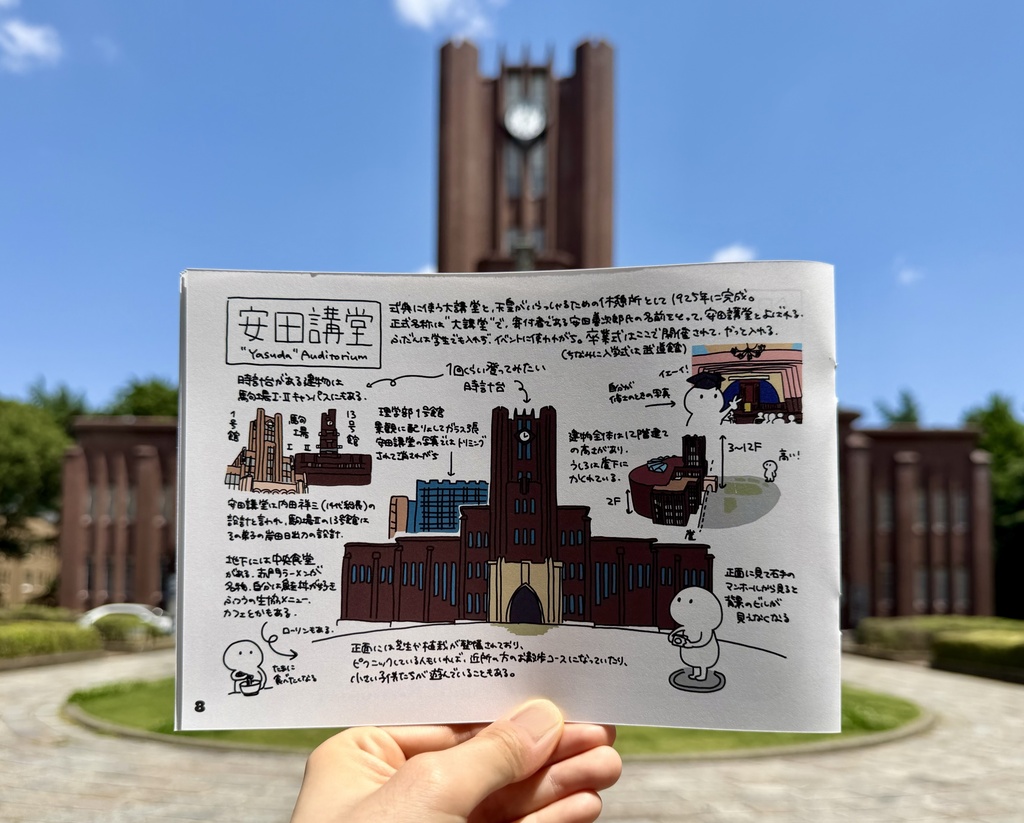 安田講堂
"Yasuda" Auditorium
式典に使う大講堂と、天皇がいらっしゃるための休憩所として1925年に完成。
正式名称は"大講堂"で、寄付者である安田善次郎氏の名前をとって、安田講堂とよばれる。
ふだんは学生でも入れず、イベントに使われがち。卒業式はここで開催されて、やっと入れる。
(ちなみに入学式は武道館)
時計台がある建物は
駒場I・IIキャンパスにもある。
1回くらい登ってみたい
時計台
イエーイ!
自分が
修士のときの写真
1号館
駒場
I II
13号館
理学部1号館
景観に配慮してガラス張
安田講堂の写真ではトリミング
されて消されがち
建物全体は12階建て
の高さがあり、
うしろは崖下に
かくれている。
3~12F
高い!
2F
崖
安田講堂は内田祥三(14代総長)の
設計と言われ、駒場IIの13号館は
その弟子の岸田日出刀の設計。
地下には中央食堂
がある。赤門ラーメンが
名物。自分は
ふつうの生協メニュー。
カフェとかもある。
ローソンもある。
たまに
食べたくなる
正面に見て右手の
マンホールから見ると
背景のビルが
見えなくなる
正面には芝生や植栽が整備されており、
ピクニックしている人もいれば、近所の方のお散歩コースになっていたり、
小さい子供たちが遊んでいることもある。
8